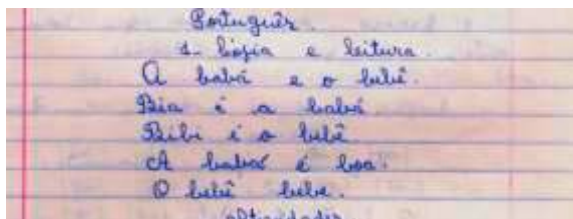 Português.
1- Cópia e leitura.
A babá e o bebê.
Bia é a babá.
Bibi é o bebê
A babá é boa.
O bebê bebe.
Atividades